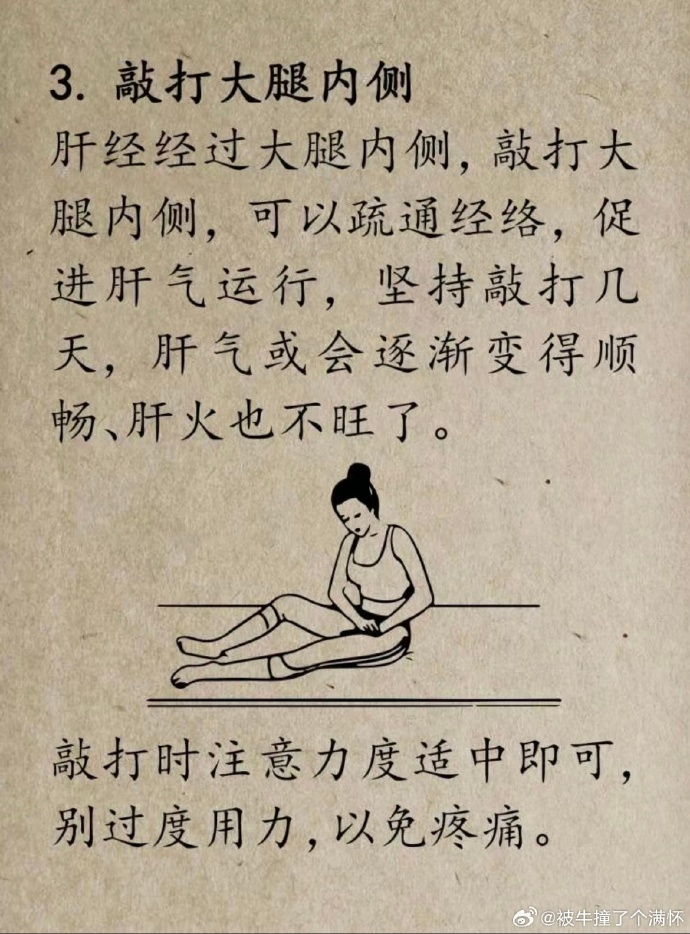 3. 敲打大腿内侧
肝经经过大腿内侧,敲打大
腿内侧，可以疏通经络，促
进肝气运行，坚持敲打几
天，肝气或会逐渐变得顺
畅、肝火也不旺了。
敲打时注意力度适中即可，
别过度用力,以免疼痛。
@被牛撞了个满怀